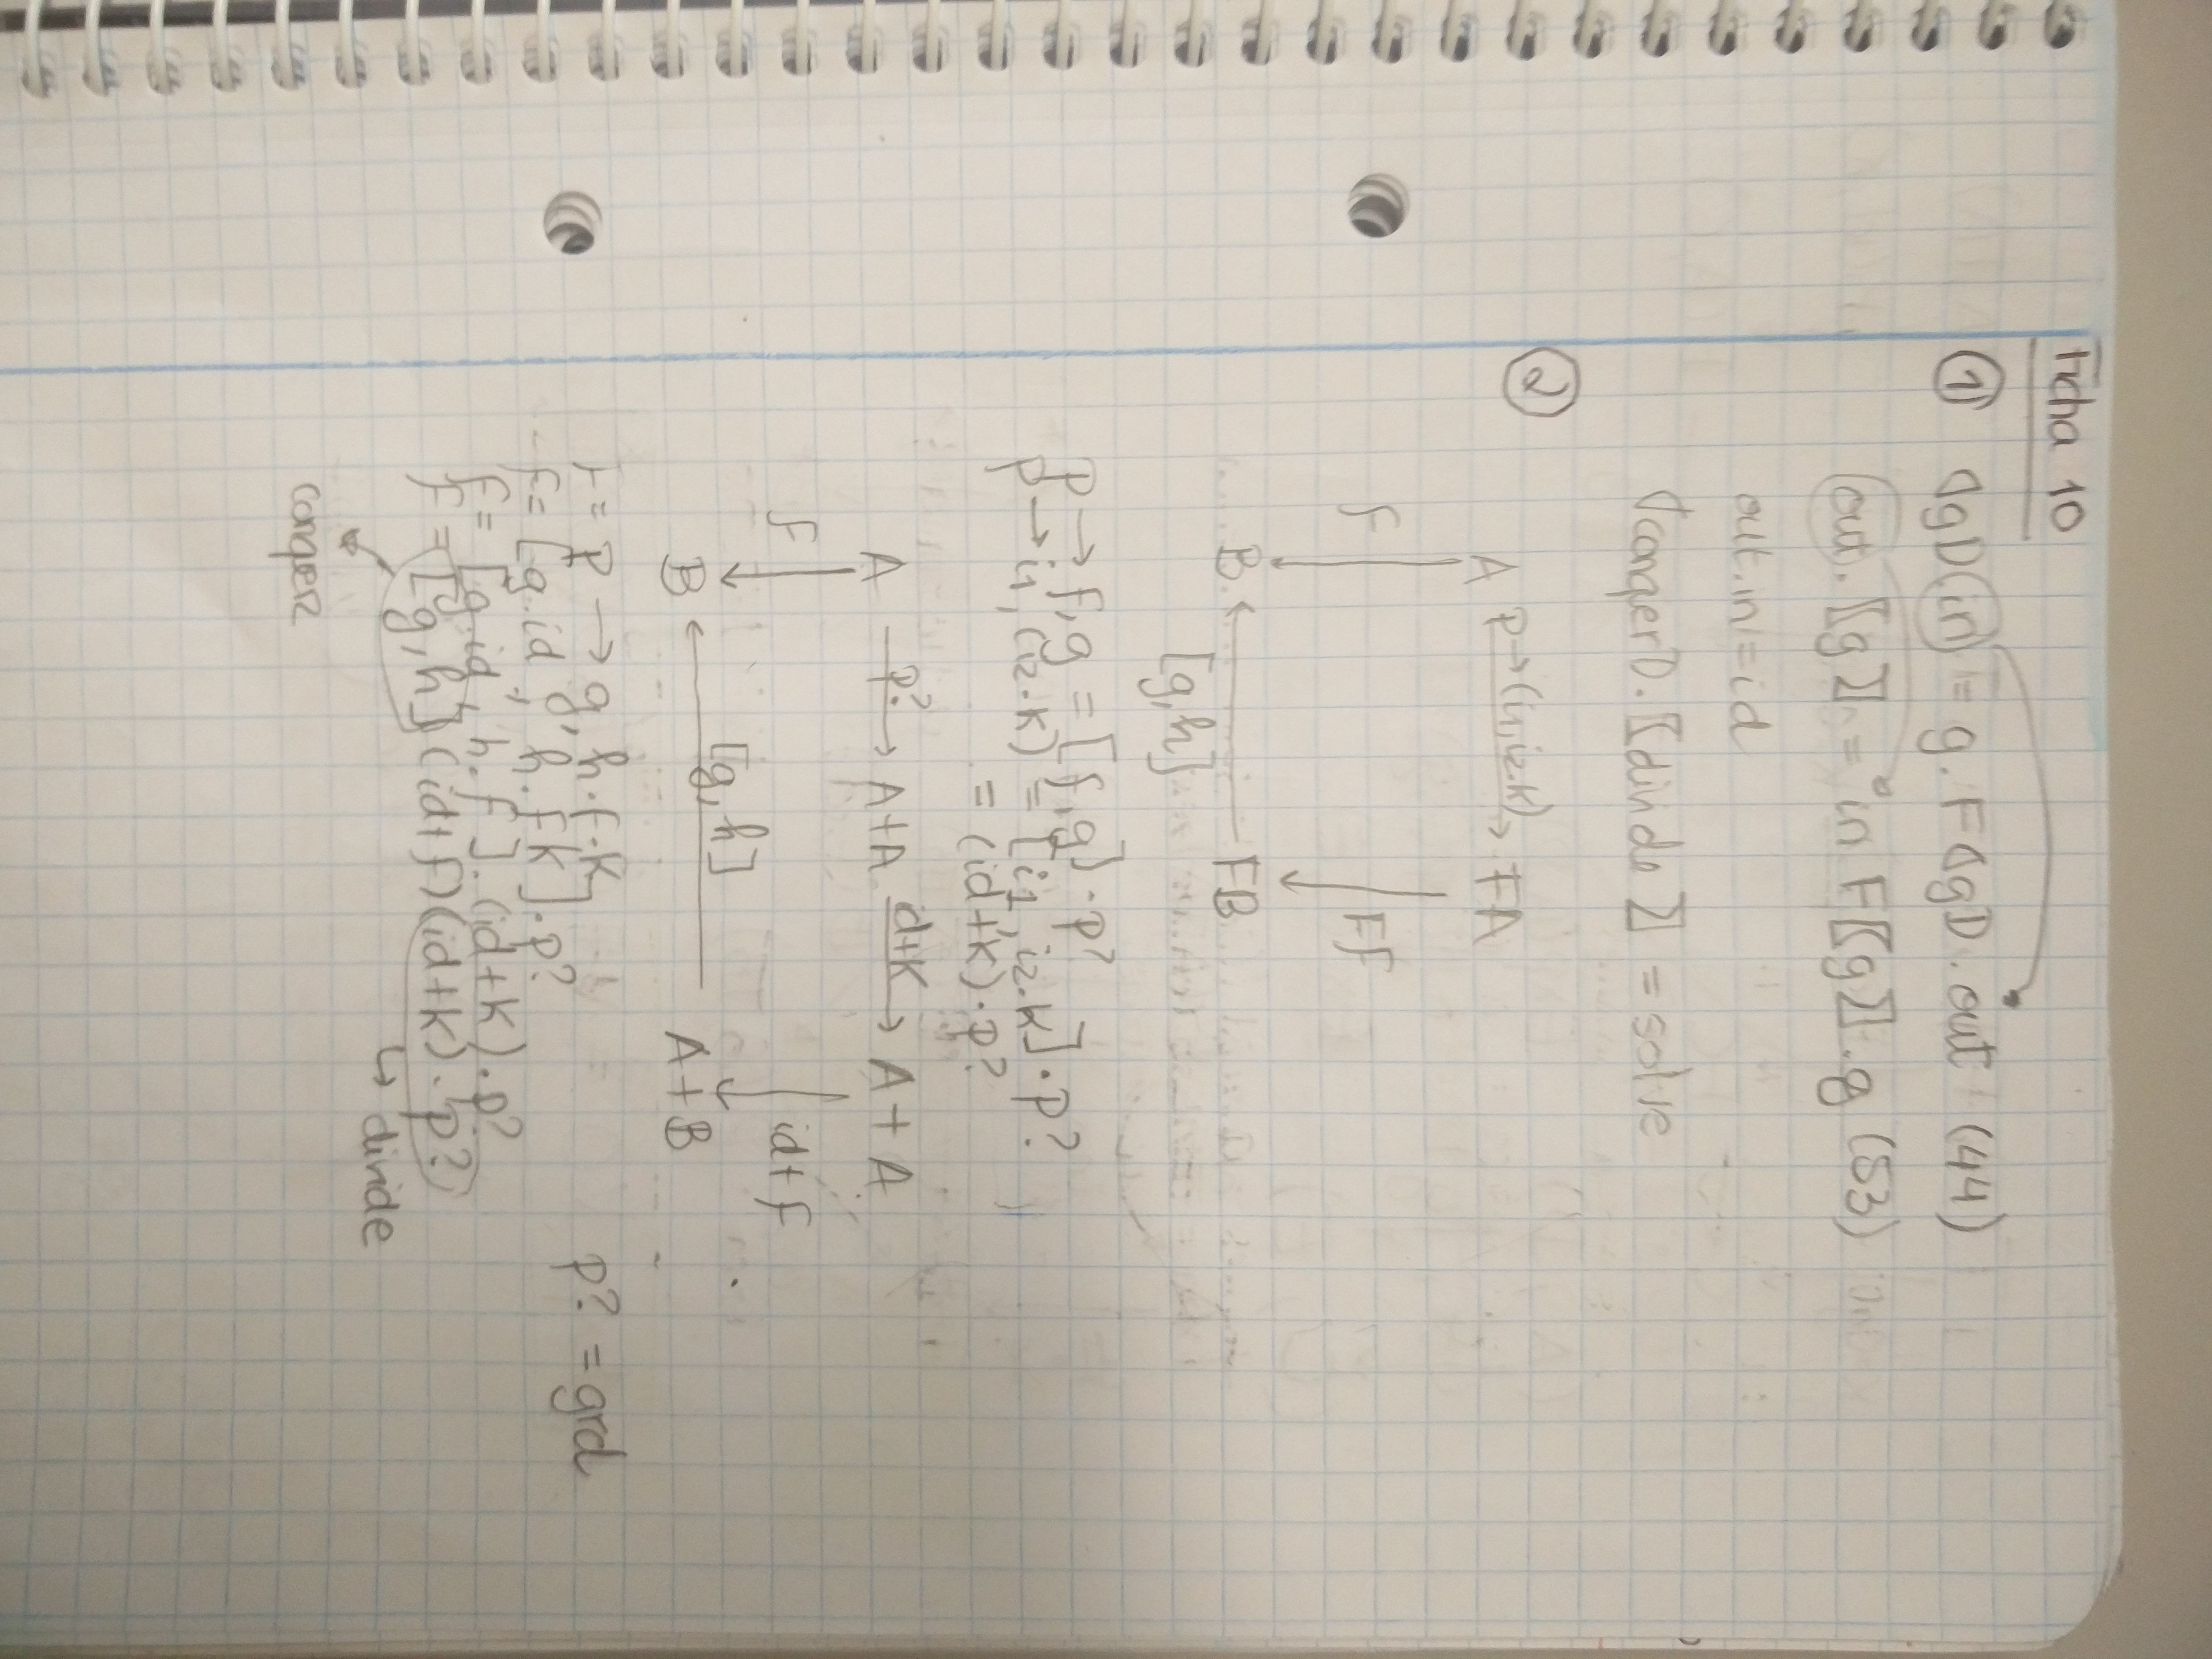 Ficha 10
① ⦇g⦈(in) = g . F⦇g⦈ . out (44)
out . 〖g〗 = in F〖g〗 . g (53)
out.in = id
⦇conqer⦈ . 〖divide〗 = solve
②
A p→(i1, i2.k) FA
f Ff
B FB
[g,h]
p → f, g = [f,g] . p?
p → i1, (i2.k) = [i1, i2.k] . p?
= (id+k) . p?
A p? A+A id+k A+A
f id+f
[g,h]
B A+B
f = p → g, h.f.k p? = grd
f = [g.id, h.fk] . p?
f = [g.id, h.f] . (id+k) . p?
f = [g,h] (id+f)(id+k) . p?
↳ divide
conquer